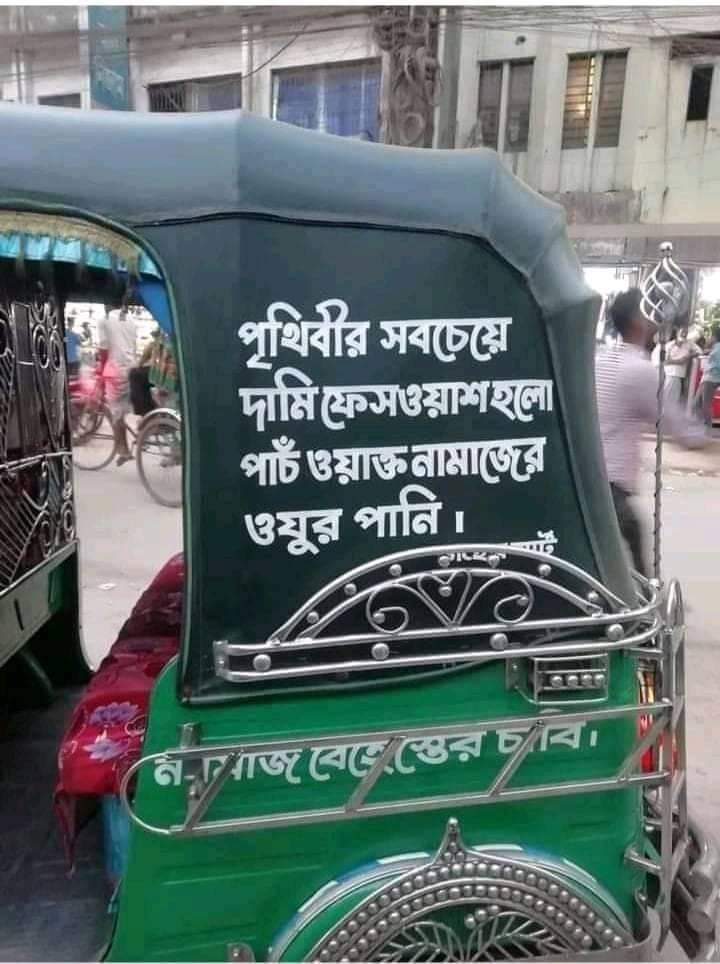 পৃথিবীর সবচেয়ে
দামি ফেসওয়াশ হলো
পাচঁ ওয়াক্ত নামাজের
ওযুর পানি ।
নামাজ বেহেস্তের চাবি ।